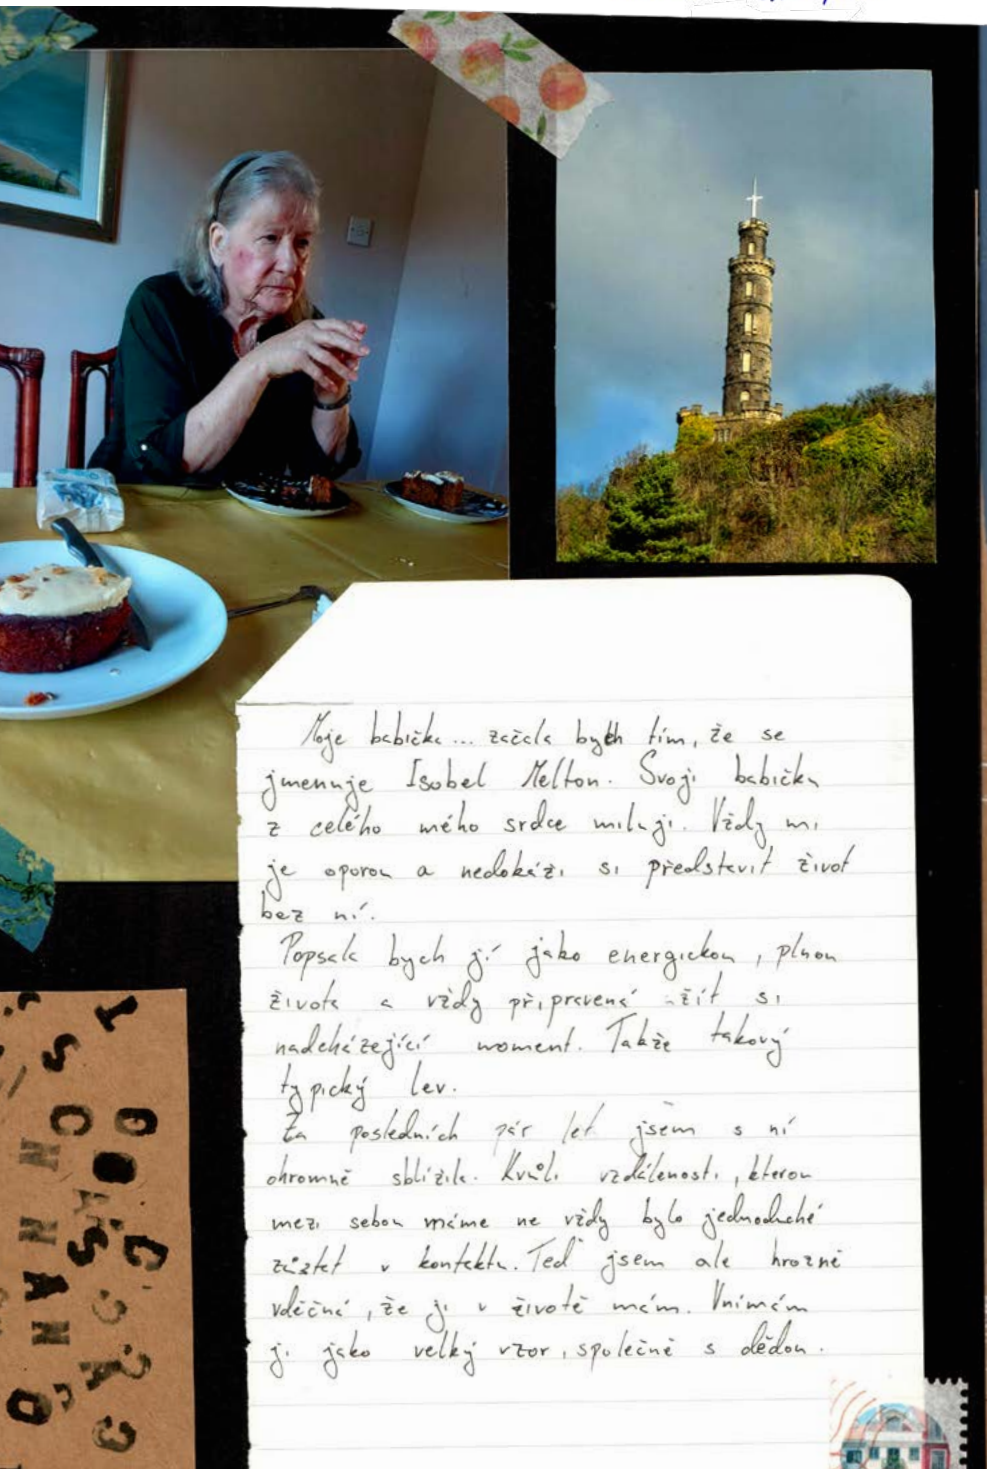 Moje babička... začala bych tím, že se
jmenuje Isobel Melton. Svoji babičku
z celého mého srdce miluji. Vždy mi
je oporou a nedokáži si představit život
bez ní.
Popsala bych jí jako energickou, plnou
života a vždy připravená užít si
nadcházející moment. Takže takový
typický lev.
Za posledních pár let jsem s ní
ohromně sblížila. Kvůli vzdálenosti, kterou
mezi sebou máme ne vždy bylo jednoduché
zůstat v kontaktu. Teď jsem ale hrozně
vděčná, že ji v životě mám. Vnímám
ji jako velký vzor, společně s dědou.